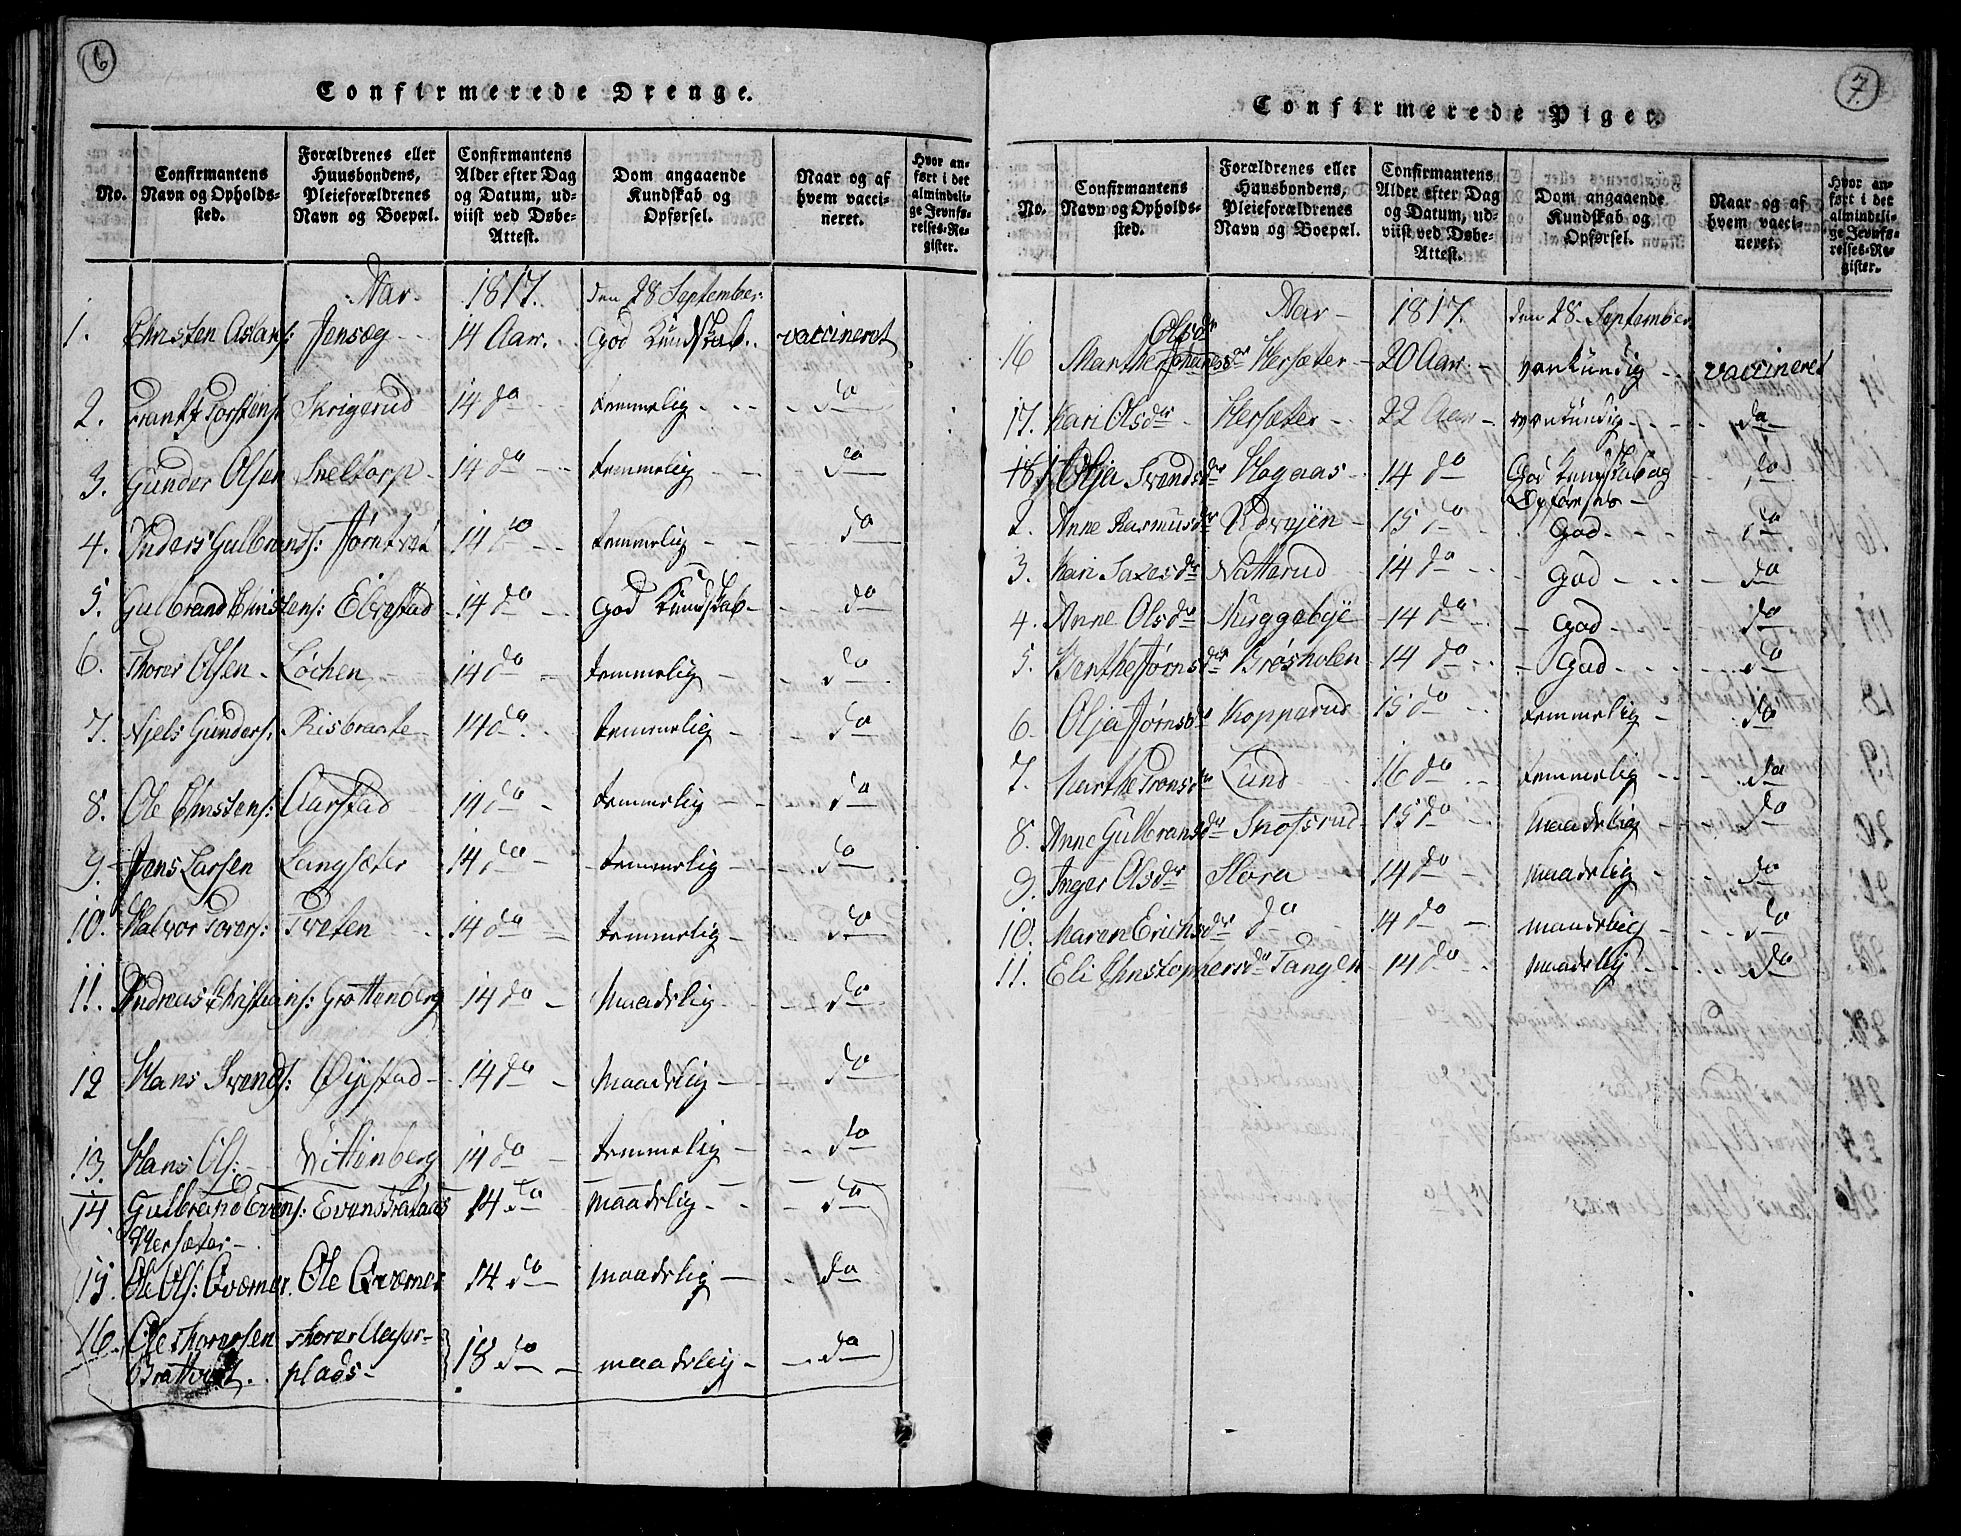 6
Confirmerede Drenge.
No. | Confirmantens Navn og Opholds-sted. | Forældrenes eller Huusbondens, Pleieforældrenes Navn og Boepæl. | Confirmantens Alder efter Dag og Datum, ud-viist ved Døbe-Attest. | Dom angaaende Kundskab og Opførsel. | Naar og af hvem vacci-neret. | Hvor an-ført i det almindeli-ge Jevnfø-relses-Re-gister.
Aar 1817. den 28 September.
1. Christen Aslaks: Jensøg 14 Aar. god Kundskab. vaccineret
2. Torstens: Skrigerud 14 do temmelig do
3. Gunder Olsen Sneltorp 14 do temmelig do
4. Anders Gulbrands: Jørntvet 14 do temmelig do
5. Gulbrand Christens: Elvestad 14 do god Kundskab do
6. Thorer Olsen Løchen 14 do temmelig do
7. Niels Gunders: Risbraate 14 do temmelig do
8. Ole Christens: Aarstad 14 do temmelig do
9. Jens Larsen Langsæter 14 do temmelig do
10. Halvor Torers: Tveten 14 do temmelig do
11. Andreas Christians: Grottenberg 14 do Maadelig do
12 Hans Svends: Øiestad 14 do Maadelig do
13. Hans Ols: Wittenberg 14 do temmelig do
14. Gulbrand Evens: Even 14 do maadelig do
Hersæter
15. Ole Ols: Qværner. Ole Qværner 14 do maadelig do
16. Ole Thorersen Thorer
Brattvet. plads 18 do maadelig do
7.
Confirmerede Piger.
No. | Confirmantens Navn og Opholds-sted. | Forældrenes eller Huusbondens, Pleieforældrenes Navn og Boepæl. | Confirmantens Alder efter Dag og Datum, ud-viist ved Døbe-Attest. | Dom angaaende Kundskab og Opførsel. | Naar og af hvem vacci-neret. | Hvor an-ført i det almindeli-ge Jevnfø-relses-Re-gister.
Aar 1817. den 28. September
Olsdr
16 Marthe Johannesdr Hersæter 20 Aar vankundig vaccineret
17. Kari Olsdr Hersæter 22 Aar vankundig do
18 1. Olja Svendsdr Hogaas 14 do God Kundskab og
Opførsel do
2. Anne Rasmusdr 15 do God do
3. Kari Saxesdr Natterud 14 do God do
4. Anne Olsdr Muggebye 14 do God do
5. Berthe Jørnsdr Brøsholen 14 do God do
6. Olja Jørnsdr Kopperud 15 do temmelig do
7. Marthe Tronsdr Lund 16 do temmelig do
8. Anne Gulbransdr Snofsrud 15 do Maadelig do
9. Inger Olsdr Slora 14 do Maadelig do
10. Maren Erichsdr do 14 do maadelig do
11. Eli Christophersdr Tangen 14 do Maadelig do